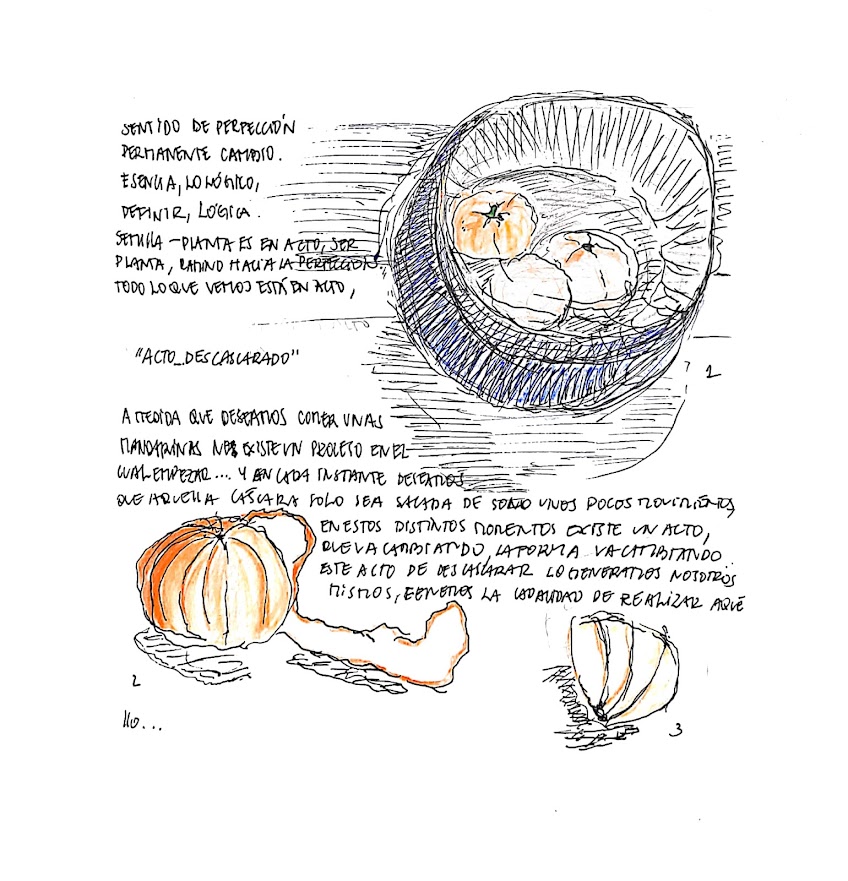 SENTIDO DE PERFECCIÓN
PERMANENTE CAMBIO.
ESENCIA, LO LÓGICO,
DEFINIR, LÓGICA.
SEMILLA – PLANTA ES EN ACTO, SER
PLANTA, CAMINO HACIA LA PERFECCIÓN
TODO LO QUE VEMOS ESTÁ EN ACTO,
"ACTO_DESCASCARADO"
1
A MEDIDA QUE DESEAMOS COMER UNAS
MANDARINAS EXISTE UN PROCESO EN EL
CUAL EMPEZAR... Y EN CADA INSTANTE DESEAMOS
QUE AQUELLA CÁSCARA SOLO SEA SACADA DE UNOS POCOS MOVIMIENTOS,
EN ESTOS DISTINTOS MOMENTOS EXISTE UN ACTO,
QUE VA CAMBIANDO, LA FORMA VA CAMBIANDO
ESTE ACTO DE DESCASCARAR LO GENERAMOS NOSOTROS
MISMOS, TENEMOS LA CAPACIDAD DE REALIZAR AQUE
2
3
llo...